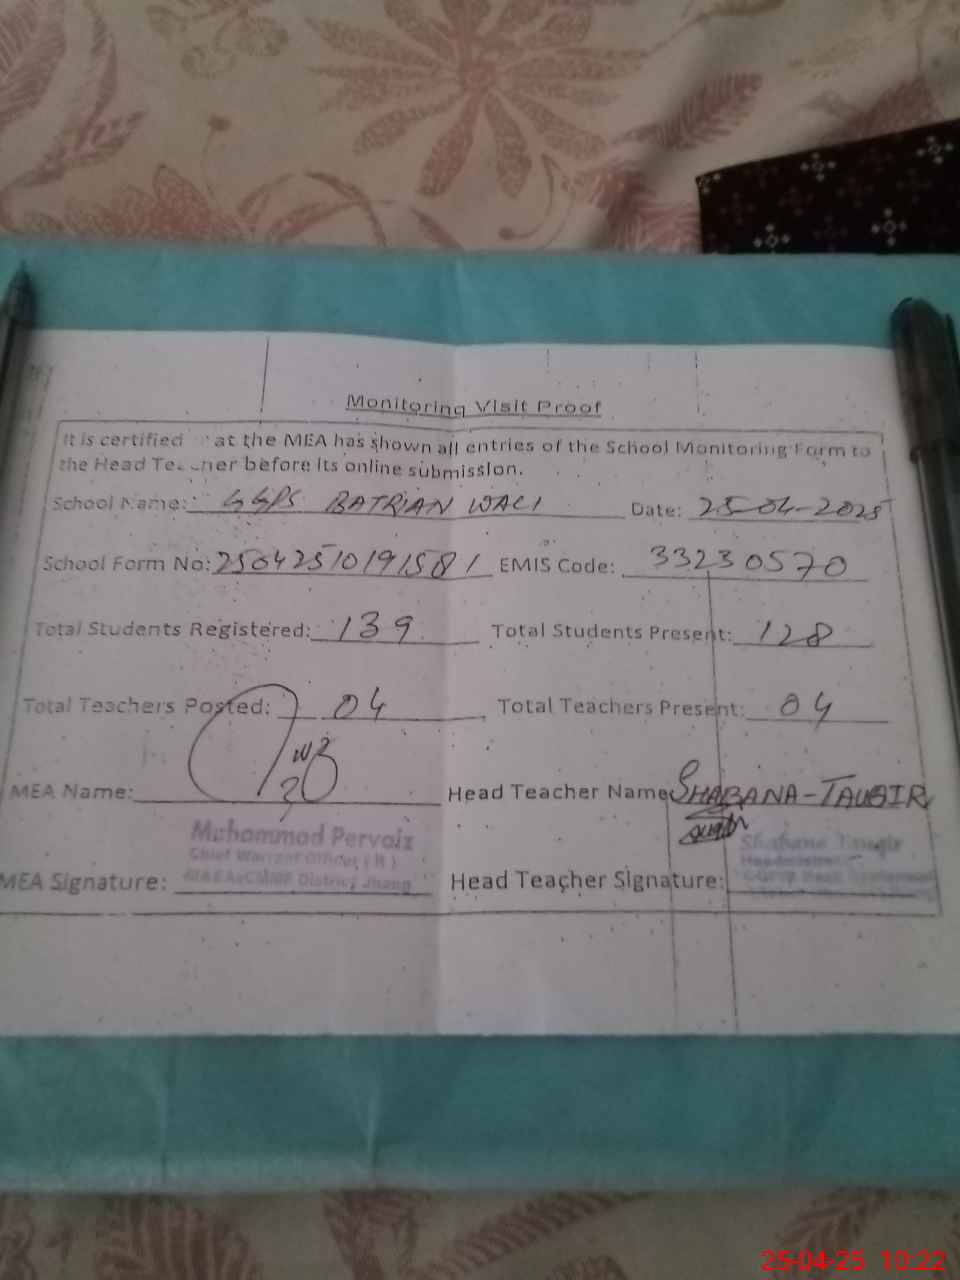 Monitoring Visit Proof
It is certified at the MEA has shown all entries of the School Monitoring Form to
the Head Teacher before its online submission.
School Name: GGPS BATRIAN WALI Date: 25-04-2025
School Form No: 25042510191581 EMIS Code: 33230570
Total Students Registered: 139 Total Students Present: 128
Total Teachers Posted: 04 Total Teachers Present: 04
MEA Name: Head Teacher Name SHABANA-TAUQIR
Muhammad Pervaiz Shabana Tauqir
Chief Warrant Officer (R)
MEA Signature: District Jhang Head Teacher Signature:
25-04-25 10:22